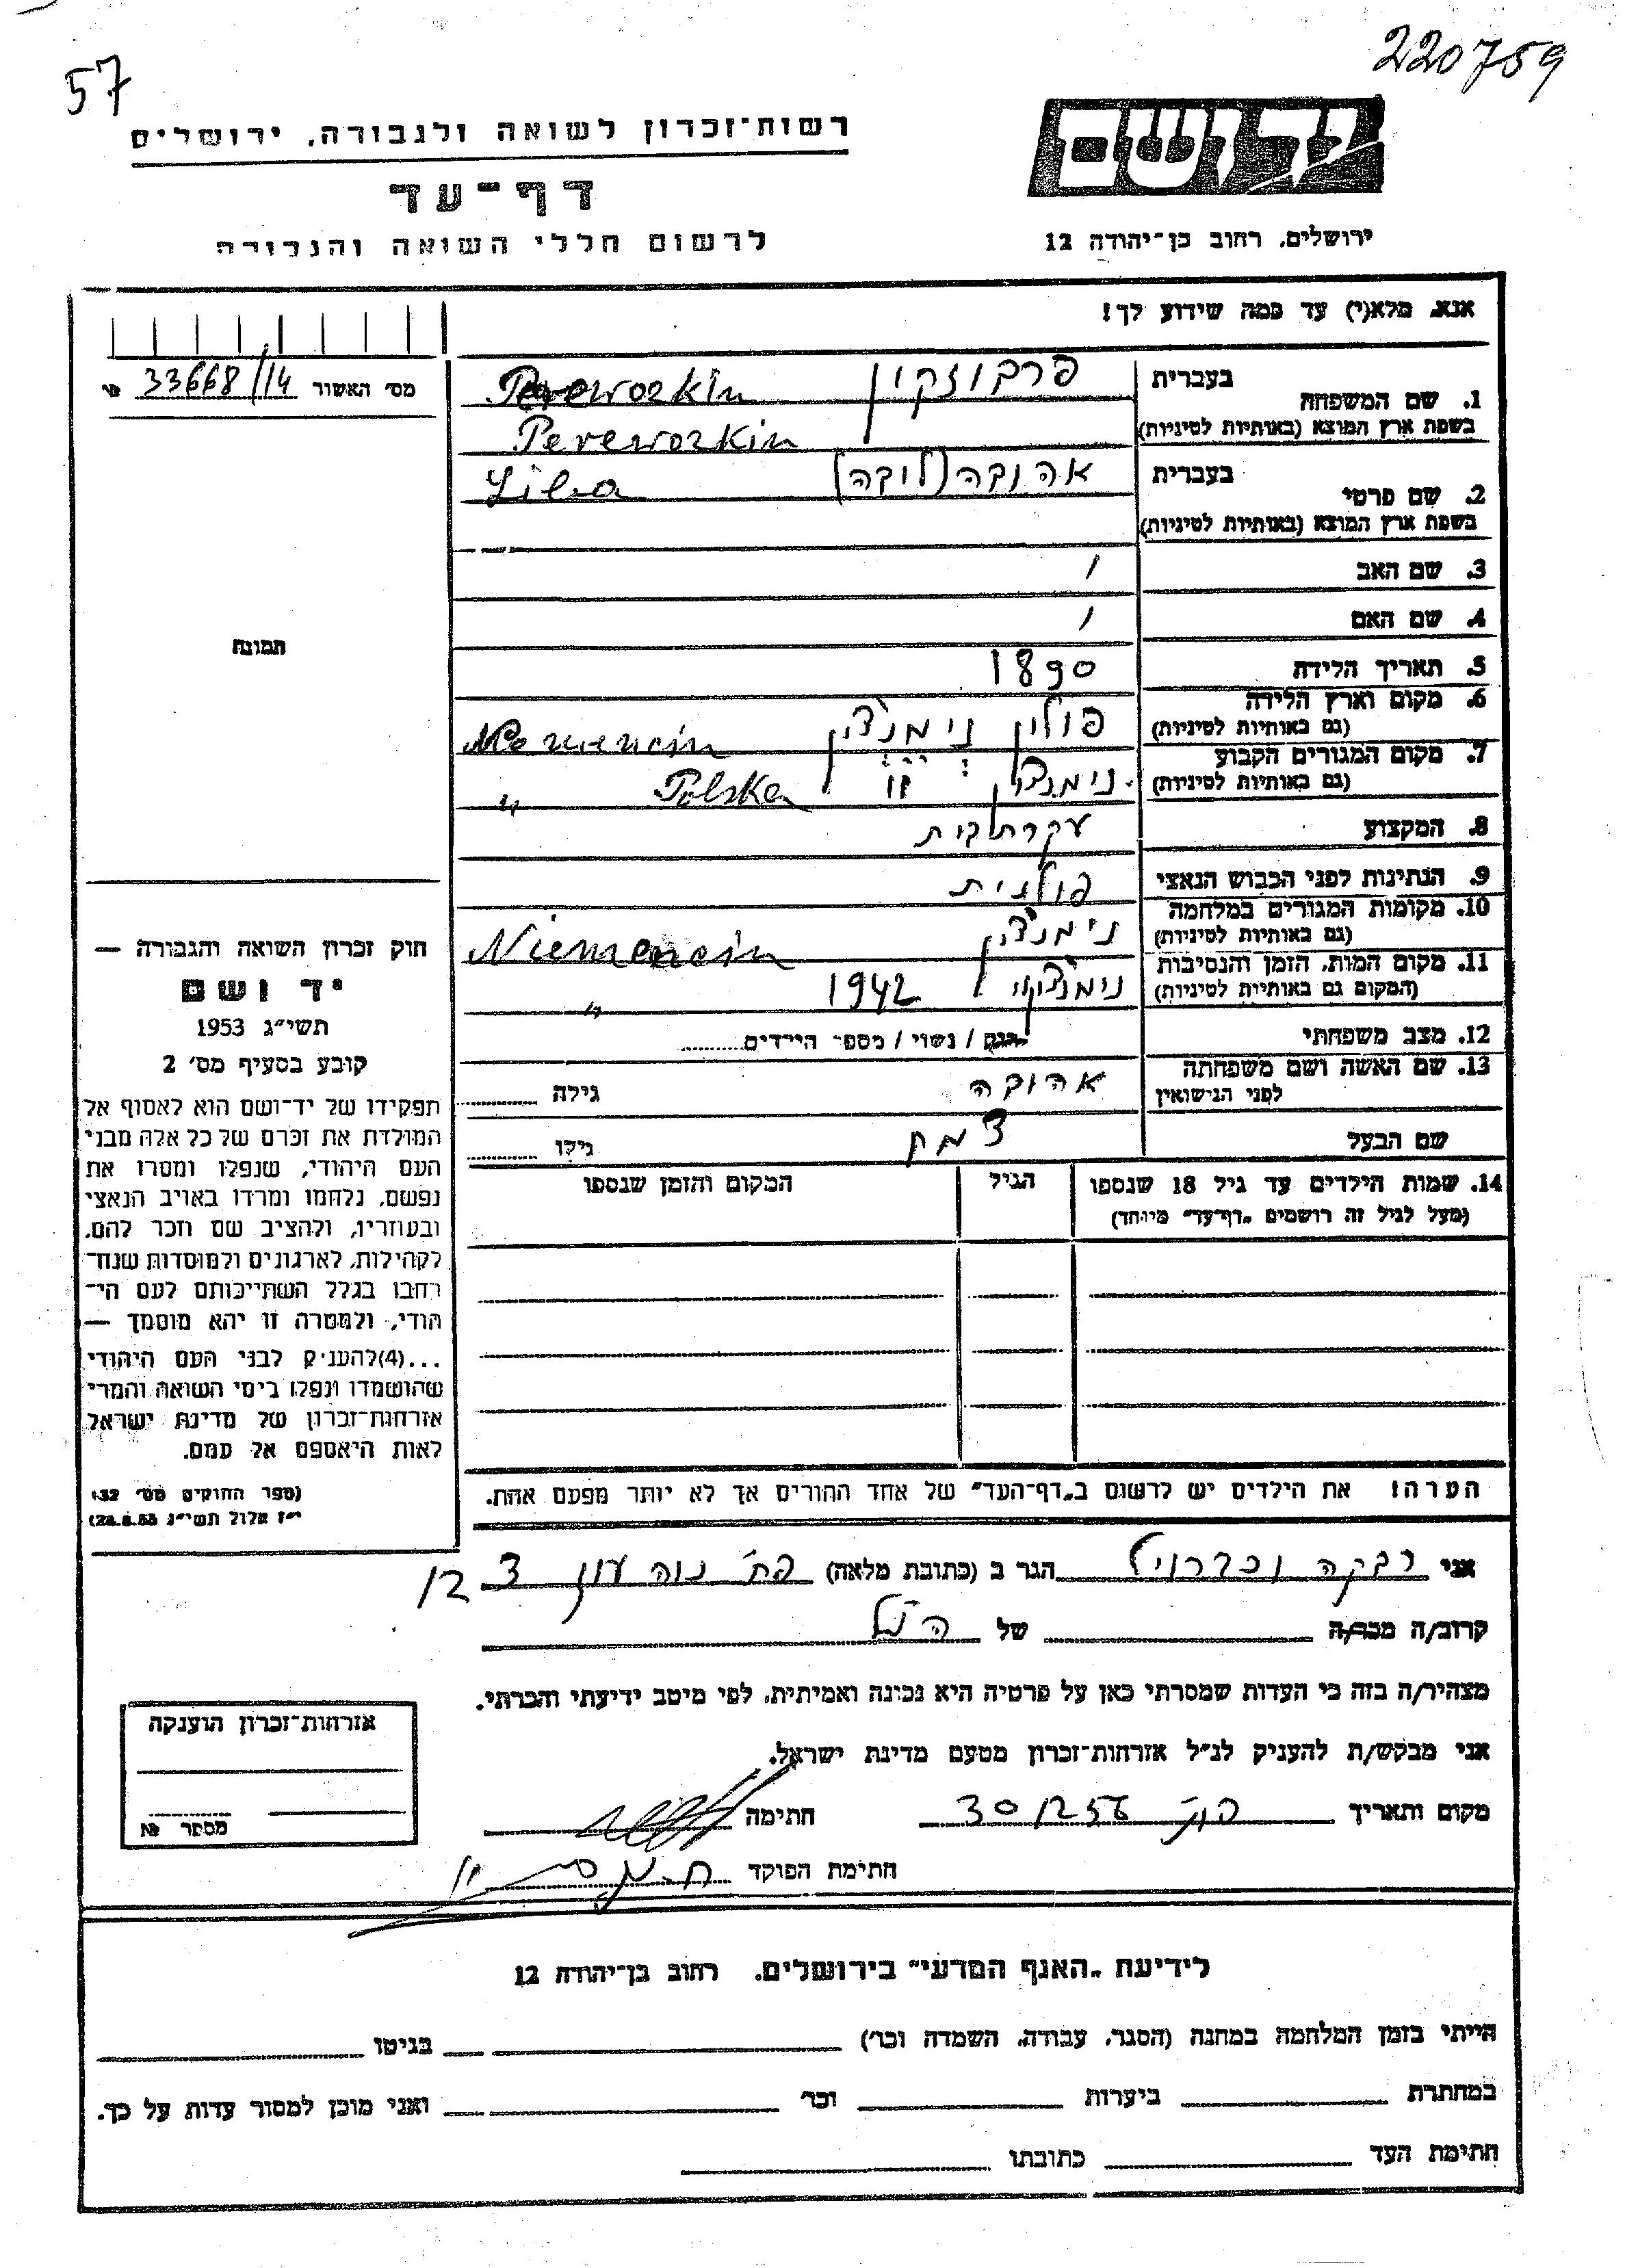 57
220759
רשות־זכרון לשואה ולגבורה, ירושלים
דף־עד
לרשום חללי השואה והגבורה
יד ושם
ירושלים, רחוב בן־יהודה 12
אנא, מלא(י) עד כמה שידוע לך!
מס׳ האשור 33668/14
1. שם המשפחה
בעברית פרבוזקין Perewozkin
בשפת ארץ המוצא (באותיות לטיניות) Perewozkin
2. שם פרטי
בעברית אהובה (לובה) Liba
בשפת ארץ המוצא (באותיות לטיניות)
3. שם האב /
4. שם האם /
5. תאריך הלידה 1890
6. מקום וארץ הלידה פולין נימנצין
(גם באותיות לטיניות)
7. מקום המגורים הקבוע נימנצין " Polska "
(גם באותיות לטיניות)
8. המקצוע עקרת בית
9. הנתינות לפני הכבוש הנאצי פולנית
10. מקומות המגורים במלחמה נימנצין Niemencin
(גם באותיות לטיניות)
11. מקום המות, הזמן והנסיבות נימנצין 1942 "
(המקום גם באותיות לטיניות)
12. מצב משפחתי רווק / נשוי / מספר הילדים
13. שם האשה ושם משפחתה אהובה גילה
לפני הנישואין
שם הבעל צמח גילו
14. שמות הילדים עד גיל 18 שנספו הגיל המקום והזמן שנספו
(מעל לגיל זה רושמים „דף־עד״ מיוחד)
הערה! את הילדים יש לרשום ב„דף־העד״ של אחד ההורים אך לא יותר מפעם אחת.
תמונה
חוק זכרון השואה והגבורה —
יד ושם
תשי״ג 1953
קובע בסעיף מס׳ 2
תפקידו של יד־ושם הוא לאסוף אל
המולדת את זכרם של כל אלה מבני
העם היהודי, שנפלו ומסרו את
נפשם, נלחמו ומרדו באויב הנאצי
ובעוזריו, ולהציב שם וזכר להם,
לקהילות, לארגונים ולמוסדות שנח־
רבו בגלל השתייכותם לעם הי־
הודי, ולמטרה זו יהא מוסמך —
...(4)להעניק לבני העם היהודי
שהושמדו ונפלו בימי השואה והמרי
אזרחות־זכרון של מדינת ישראל
לאות היאספם אל עמם.
(ספר החוקים מס׳ 132
י״ז אלול תשי״ג 28.8.53)
אני רבקה הגר ב (כתובת מלאה) פת׳ נוה עוז
קרוב/ה מכר/ה של הנ״ל
מצהיר/ה בזה כי העדות שמסרתי כאן על פרטיה היא נכונה ואמיתית, לפי מיטב ידיעתי והכרתי.
אני מבקש/ת להעניק לנ״ל אזרחות־זכרון מטעם מדינת ישראל.
מקום ותאריך 30/12 56 חתימה
חתימת הפוקד
אזרחות־זכרון הוענקה
מספר №
לידיעת „האגף המדעי״ בירושלים. רחוב בן־יהודה 12
הייתי בזמן המלחמה במחנה (הסגר, עבודה, השמדה וכו׳) בגיטו
במחתרת ביערות וכו׳ ואני מוכן למסור עדות על כך.
חתימת העד כתובתו